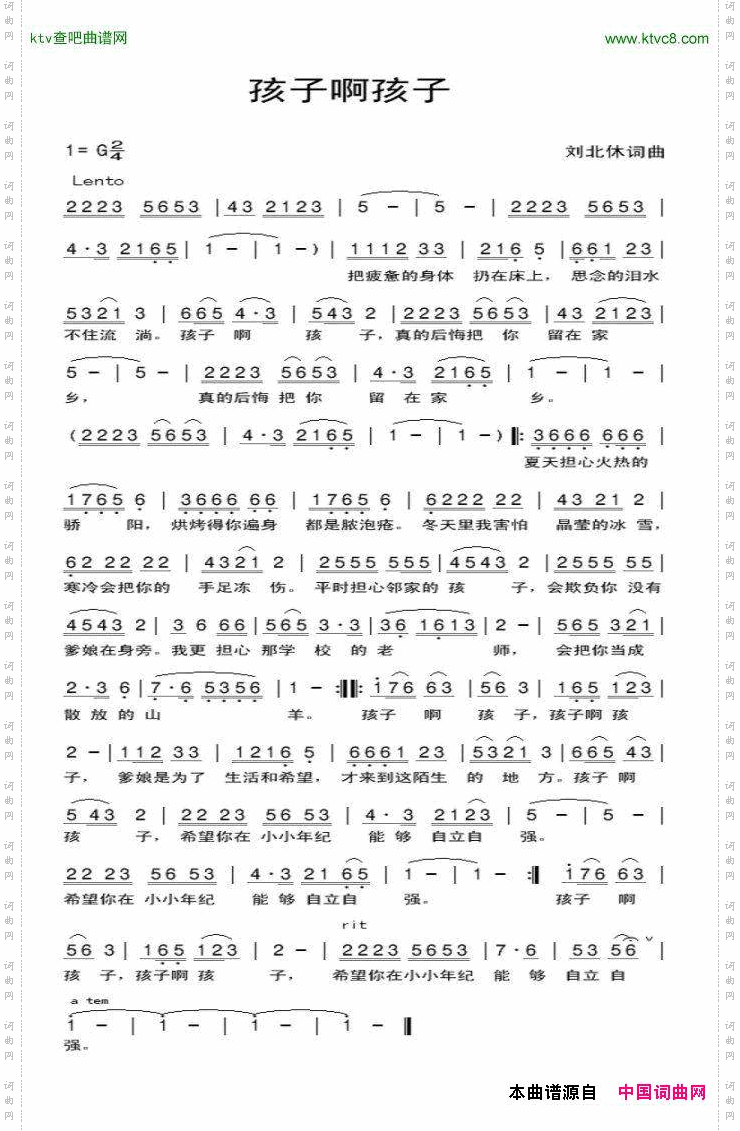 ktv查吧曲谱网 www.ktvc8.com
孩子啊孩子
1= G 2/4 刘北休词曲
Lento
2223 5653 | 43 2123 | 5 - | 5 - | 2223 5653 |
4·3 2165 | 1 - | 1 - ) | 1112 33 | 216 5 | 661 23 |
把疲惫的身体 扔在床上， 思念的泪水
5321 3 | 665 4·3 | 543 2 | 2223 5653 | 43 2123 |
不住流 淌。孩子 啊 孩 子，真的后悔把 你 留在 家
5 - | 5 - | 2223 5653 | 4·3 2165 | 1 - | 1 - |
乡， 真的后悔 把 你 留 在 家 乡。
(2223 5653 | 4·3 2165 | 1 - | 1 - ) ‖: 3666 666 |
夏天担心火热的
1765 6 | 3666 66 | 1765 6 | 6222 22 | 43 21 2 |
骄 阳，烘烤得你遍身 都是脓泡疮。冬天里我害怕 晶莹的冰 雪，
62 22 22 | 4321 2 | 2555 555 | 4543 2 | 2555 55 |
寒冷会把你的 手足冻 伤。平时担心邻家的 孩 子，会欺负你 没有
4543 2 | 3 6 66 | 565 3·3 | 36 1613 | 2 - | 565 321 |
爹娘在身旁。我更 担心 那学 校 的 老 师， 会把你当成
2·3 6 | 7·6 5356 | 1 - :‖: 176 63 | 56 3 | 165 123 |
散 放 的 山 羊。 孩子 啊 孩 子，孩子啊 孩
2 - | 112 33 | 1216 5 | 6661 23 | 5321 3 | 665 43 |
子， 爹娘是为了 生活和希望，才来到这陌生 的 地 方。孩子 啊
5 43 2 | 22 23 56 53 | 4·3 2123 | 5 - | 5 - |
孩 子，希望你在 小小年纪 能 够 自立自 强。
22 23 56 53 | 4·3 21 65 | 1 - | 1 - :‖ 176 63 |
希望你在 小小年纪 能 够 自立自 强。 孩子 啊
rit
56 3 | 165 123 | 2 - | 2223 5653 | 7·6 | 53 56 |
孩 子，孩子啊 孩 子， 希望你在小小年纪 能 够 自立 自
a tem
1 - | 1 - | 1 - | 1 - ‖
强。
本曲谱源自 中国词曲网